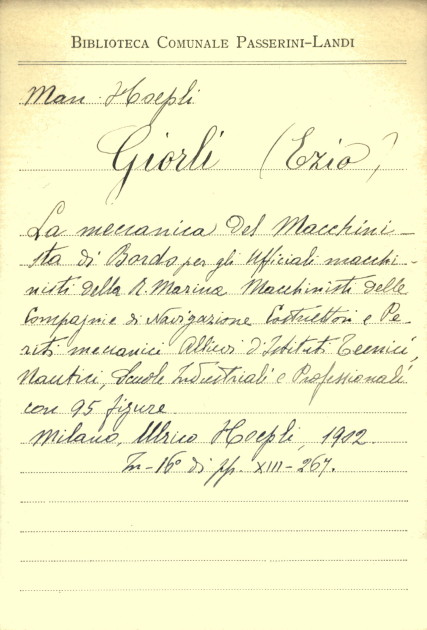 BIBLIOTECA COMUNALE PASSERINI-LANDI
Man. Hoepli
Giorli (Ezio)
La meccanica del Macchini-
sta di Bordo per gli Ufficiali macchi-
nisti della R. Marina Macchinisti delle
Compagnie di Navigazione Costruttori e Pe-
riti meccanici Allievi d'Istituti Tecnici,
Nautici, Scuole Industriali e Professionali
con 95 figure.
Milano, Ulrico Hoepli, 1902.
In-16° di pp. XIII-267.